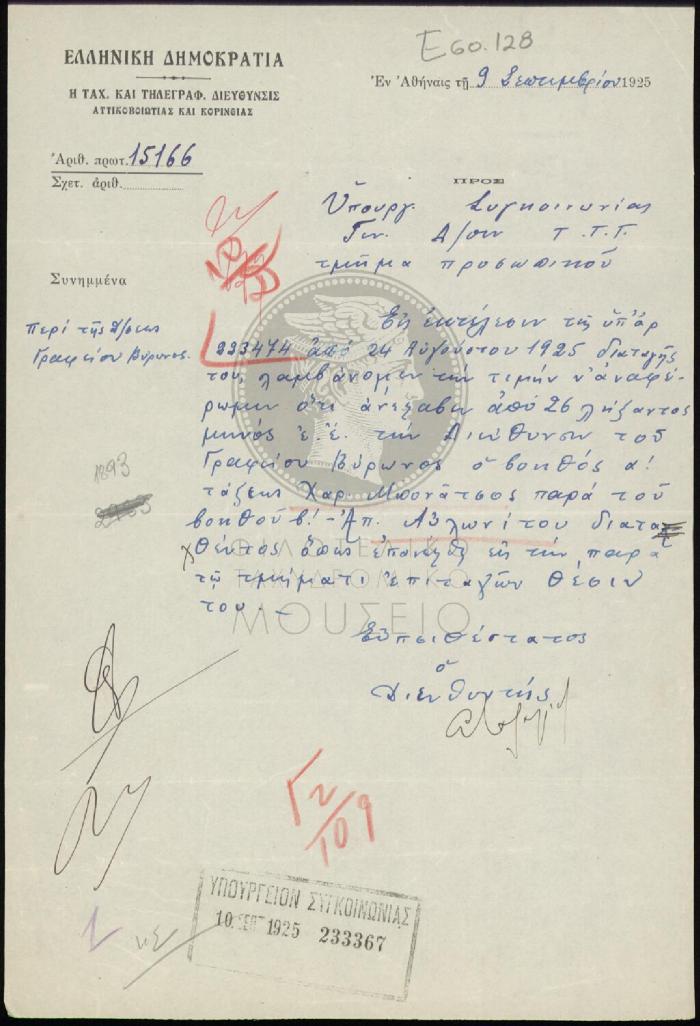 Ε60.128
ΕΛΛΗΝΙΚΗ ΔΗΜΟΚΡΑΤΙΑ
Η ΤΑΧ. ΚΑΙ ΤΗΛΕΓΡΑΦ. ΔΙΕΥΘΥΝΣΙΣ
ΑΤΤΙΚΟΒΟΙΩΤΙΑΣ ΚΑΙ ΚΟΡΙΝΘΙΑΣ
Ἐν Ἀθήναις τῇ 9 Σεπτεμβρίου 1925
Ἀριθ. πρωτ. 15166
Σχετ. ἀριθ.
ΠΡΟΣ
Ὑπουργ. Συγκοινωνίας
Γεν. Δ/σιν Τ.Τ.Τ.
τμῆμα προσωπικοῦ
Συνημμένα
περὶ τῆς Δ/σεως
Γραφείου Βύρωνος.
Εἰς ἐκτέλεσιν τῆς ὑπ' ἀρ
233474 ἀπό 24 Αὐγούστου 1925 διαταγῆς
του, λαμβάνομεν τὴν τιμήν ν' ἀναφέ-
ρωμεν ὅτι ἀνέλαβεν ἀπό 26 λήξαντος
μηνός ἐ.ἔ. τὴν Διεύθυνσιν τοῦ
Γραφείου Βύρωνος ὁ βοηθός α!
τάξεως Χαρ. Μπονάτσος παρά τοῦ
βοηθοῦ β! - Ἀπ. Αὐλωνίτου διατα
χθέντος ὅπως ἐπανέλθῃ εἰς τὴν παρά
τῷ τμήματι ἐπιταγῶν θέσιν
του. _
1893
ΦΙΛΟΤΕΛΙΚΟ
ΤΑΧΥΔΡΟΜΙΚΟ
ΜΟΥΣΕΙΟ
Εὐπειθέστατος
ὁ
Διευθυντής
10/9
ΥΠΟΥΡΓΕΙΟΝ ΣΥΓΚΟΙΝΩΝΙΑΣ
10 ΣΕΠ 1925 233367